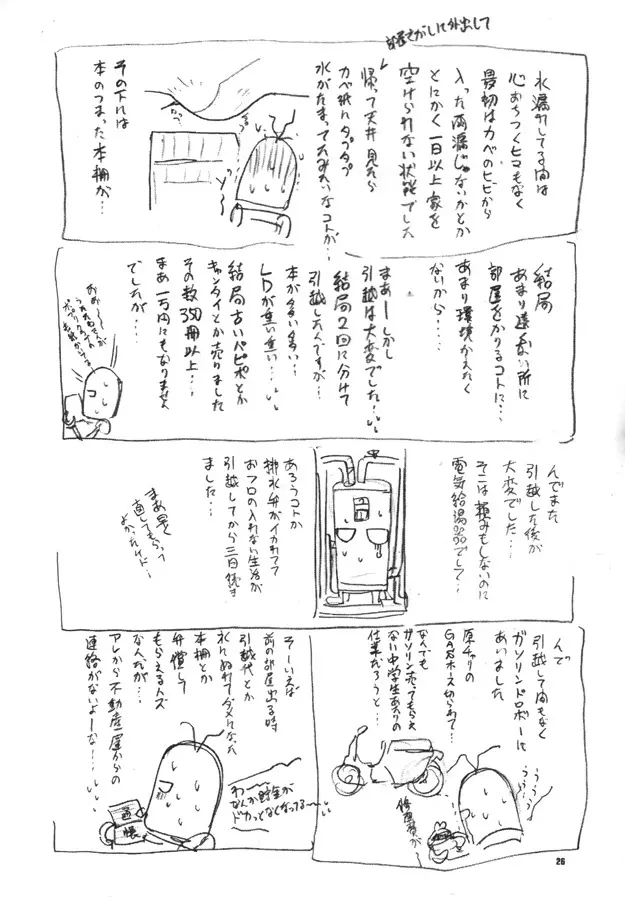 部屋さがしに外出して
水漏れしてる間は
心おちつくヒマもなく
最初はカベのヒビから
入った雨漏じゃないかとか
とにかく一日以上家を
空けられない状態でした
帰って天井見たら
カベ紙にタプタプ
水がたまってたみたいな
コトが…
その下には
本のつまった本棚が…
結局
あまり遠くない所に
部屋をかりるコトに…
あまり環境かえたく
ないから‥‥
まあーしかし
引越は大変でした…
結局2回に分けて
引越したんですが…
本が多い多い…
LDが重い重い…
結局古いパピポとか
キャンタイとか売りました
その数350冊以上…
まあ一万円にもなりません
でしたが…
んでまた
引越した後が
大変でした…
そこは頼みもしないのに
電気給湯器でして…
あろうコトか
排水弁がイカれてて
おフロの入れない生活が
引越してから三日続き
ました…
まあ早く
直してもらって
よかったケド…
んで
引越して間もなく
ガソリンドロボーに
あいました
原チャリの
GASホース切られて…
なんでも
ガソリン売ってもらえ
ない中学生あたりの
仕業だろうと…
うぅうぅ…
修理費が…
そーいえば
前の部屋出る時
引越代とか
水にぬれてダメになった
本棚とか
弁償して
もらえるハズ
なんだが…
アレから不動産屋からの
連絡がないよーな…
わー
なんか貯金が
ドカっとなくなってる〜
通帳
26